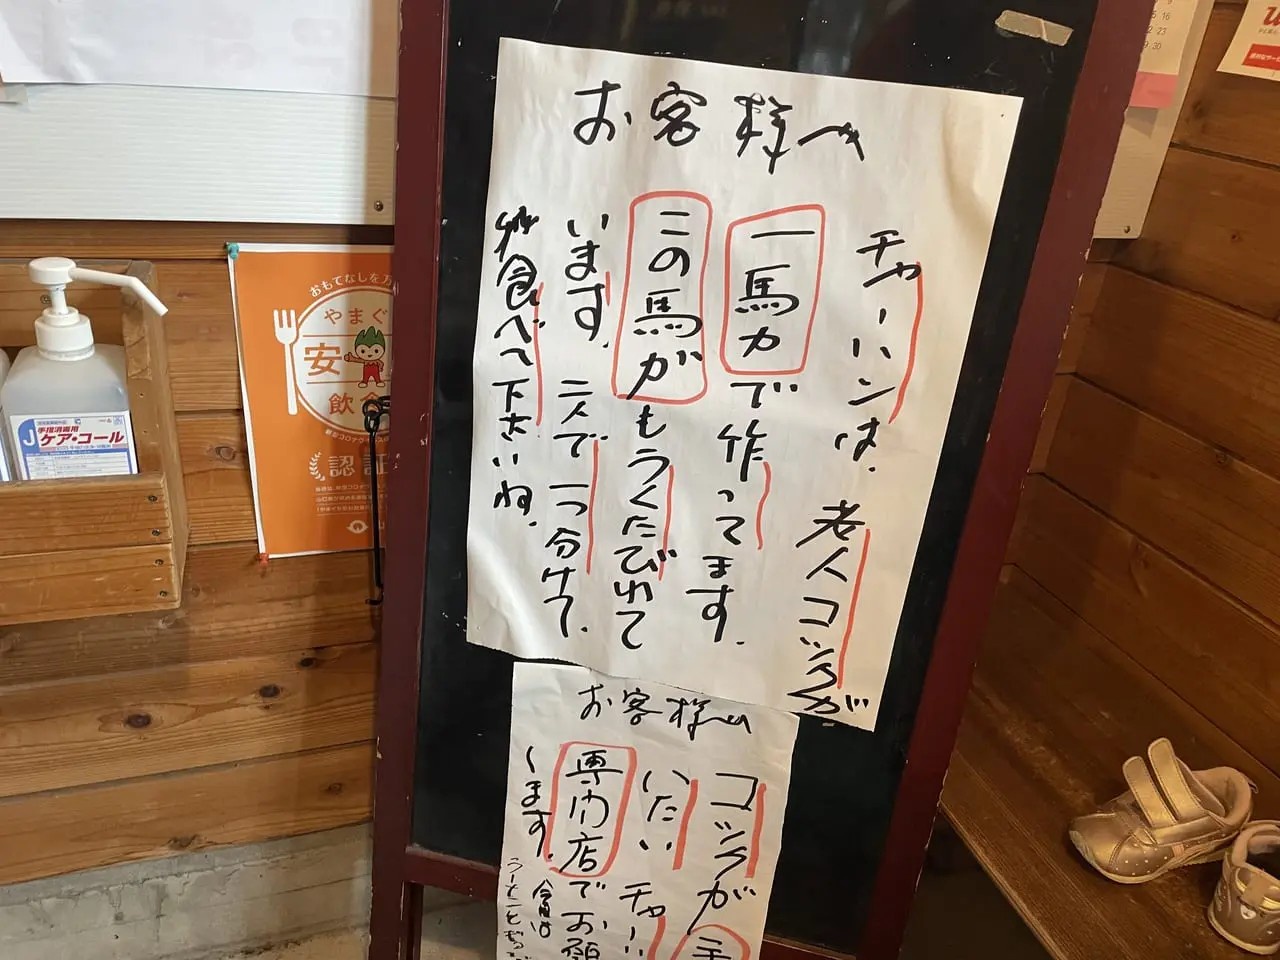 お客様へ
チャーハンは、老人コックが
一馬力で作ってます。
この馬がもうくたびれて
います。二人で一つ分けて、
食べて下さいね。
お客様へ
コックが
いたい チャーハ
専門店でお願
します。
今日は
おもてなしを
やまぐ
安
飲食
認証
J 手指消毒用
ケア・コール